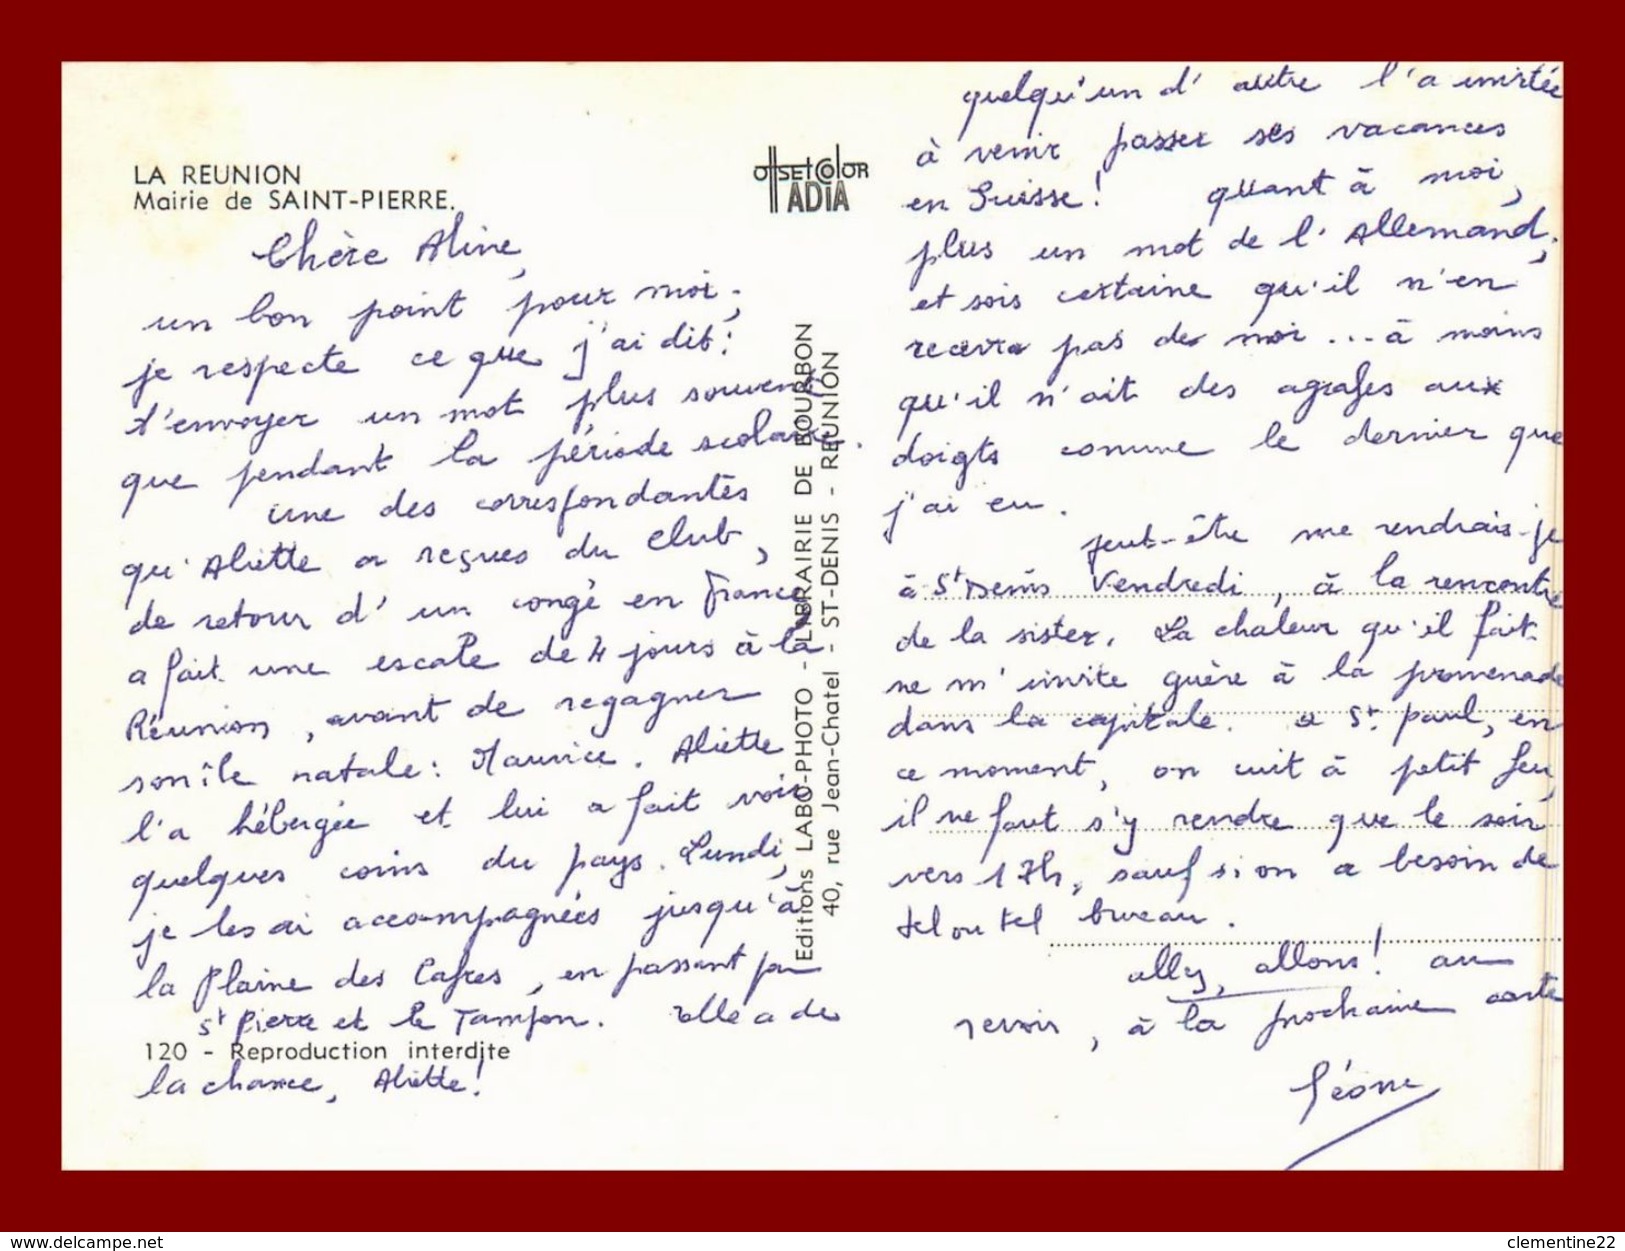 LA REUNION
Mairie de SAINT-PIERRE.
OffSETCOlOR
ADIA
Chère Aline,
un bon point pour moi ;
je respecte ce que j'ai dit :
t'envoyer un mot plus souvent
que pendant la période scolaire.
une des correspondantes
qu'Aliette a reçues du club,
de retour d'un congé en France
a fait une escale de 4 jours à la
Réunion, avant de regagner
son île natale : Maurice. Aliette
l'a hébergée et lui a fait voir
quelques coins du pays. Lundi,
je les ai accompagnées jusqu'à
la Plaine des Cafres, en passant par
St Pierre et le Tampon. Elle a de
120 - Reproduction interdite
la chance, Aliette !
Editions LABO-PHOTO - LIBRAIRIE DE BOURBON
40, rue Jean-Chatel - ST-DENIS - REUNION
quelqu'un d'autre l'a invitée
à venir passer ses vacances
en Suisse ! quant à moi,
plus un mot de l'Allemand,
et sois certaine qu'il n'en
recevra pas de moi ... à moins
qu'il n'ait des agrafes aux
doigts comme le dernier que
j'ai eu.
peut-être me rendrais-je
à St Denis Vendredi, à la rencontre
de la sister. La chaleur qu'il fait
ne m'invite guère à la promenade
dans la capitale. a St. Paul, en
ce moment, on cuit à petit feu,
il ne faut s'y rendre que le soir
vers 17h, sauf si on a besoin de
tel ou tel bureau.
ally, allons ! au
revoir, à la prochaine carte
Léone
www.delcampe.net
clementine22